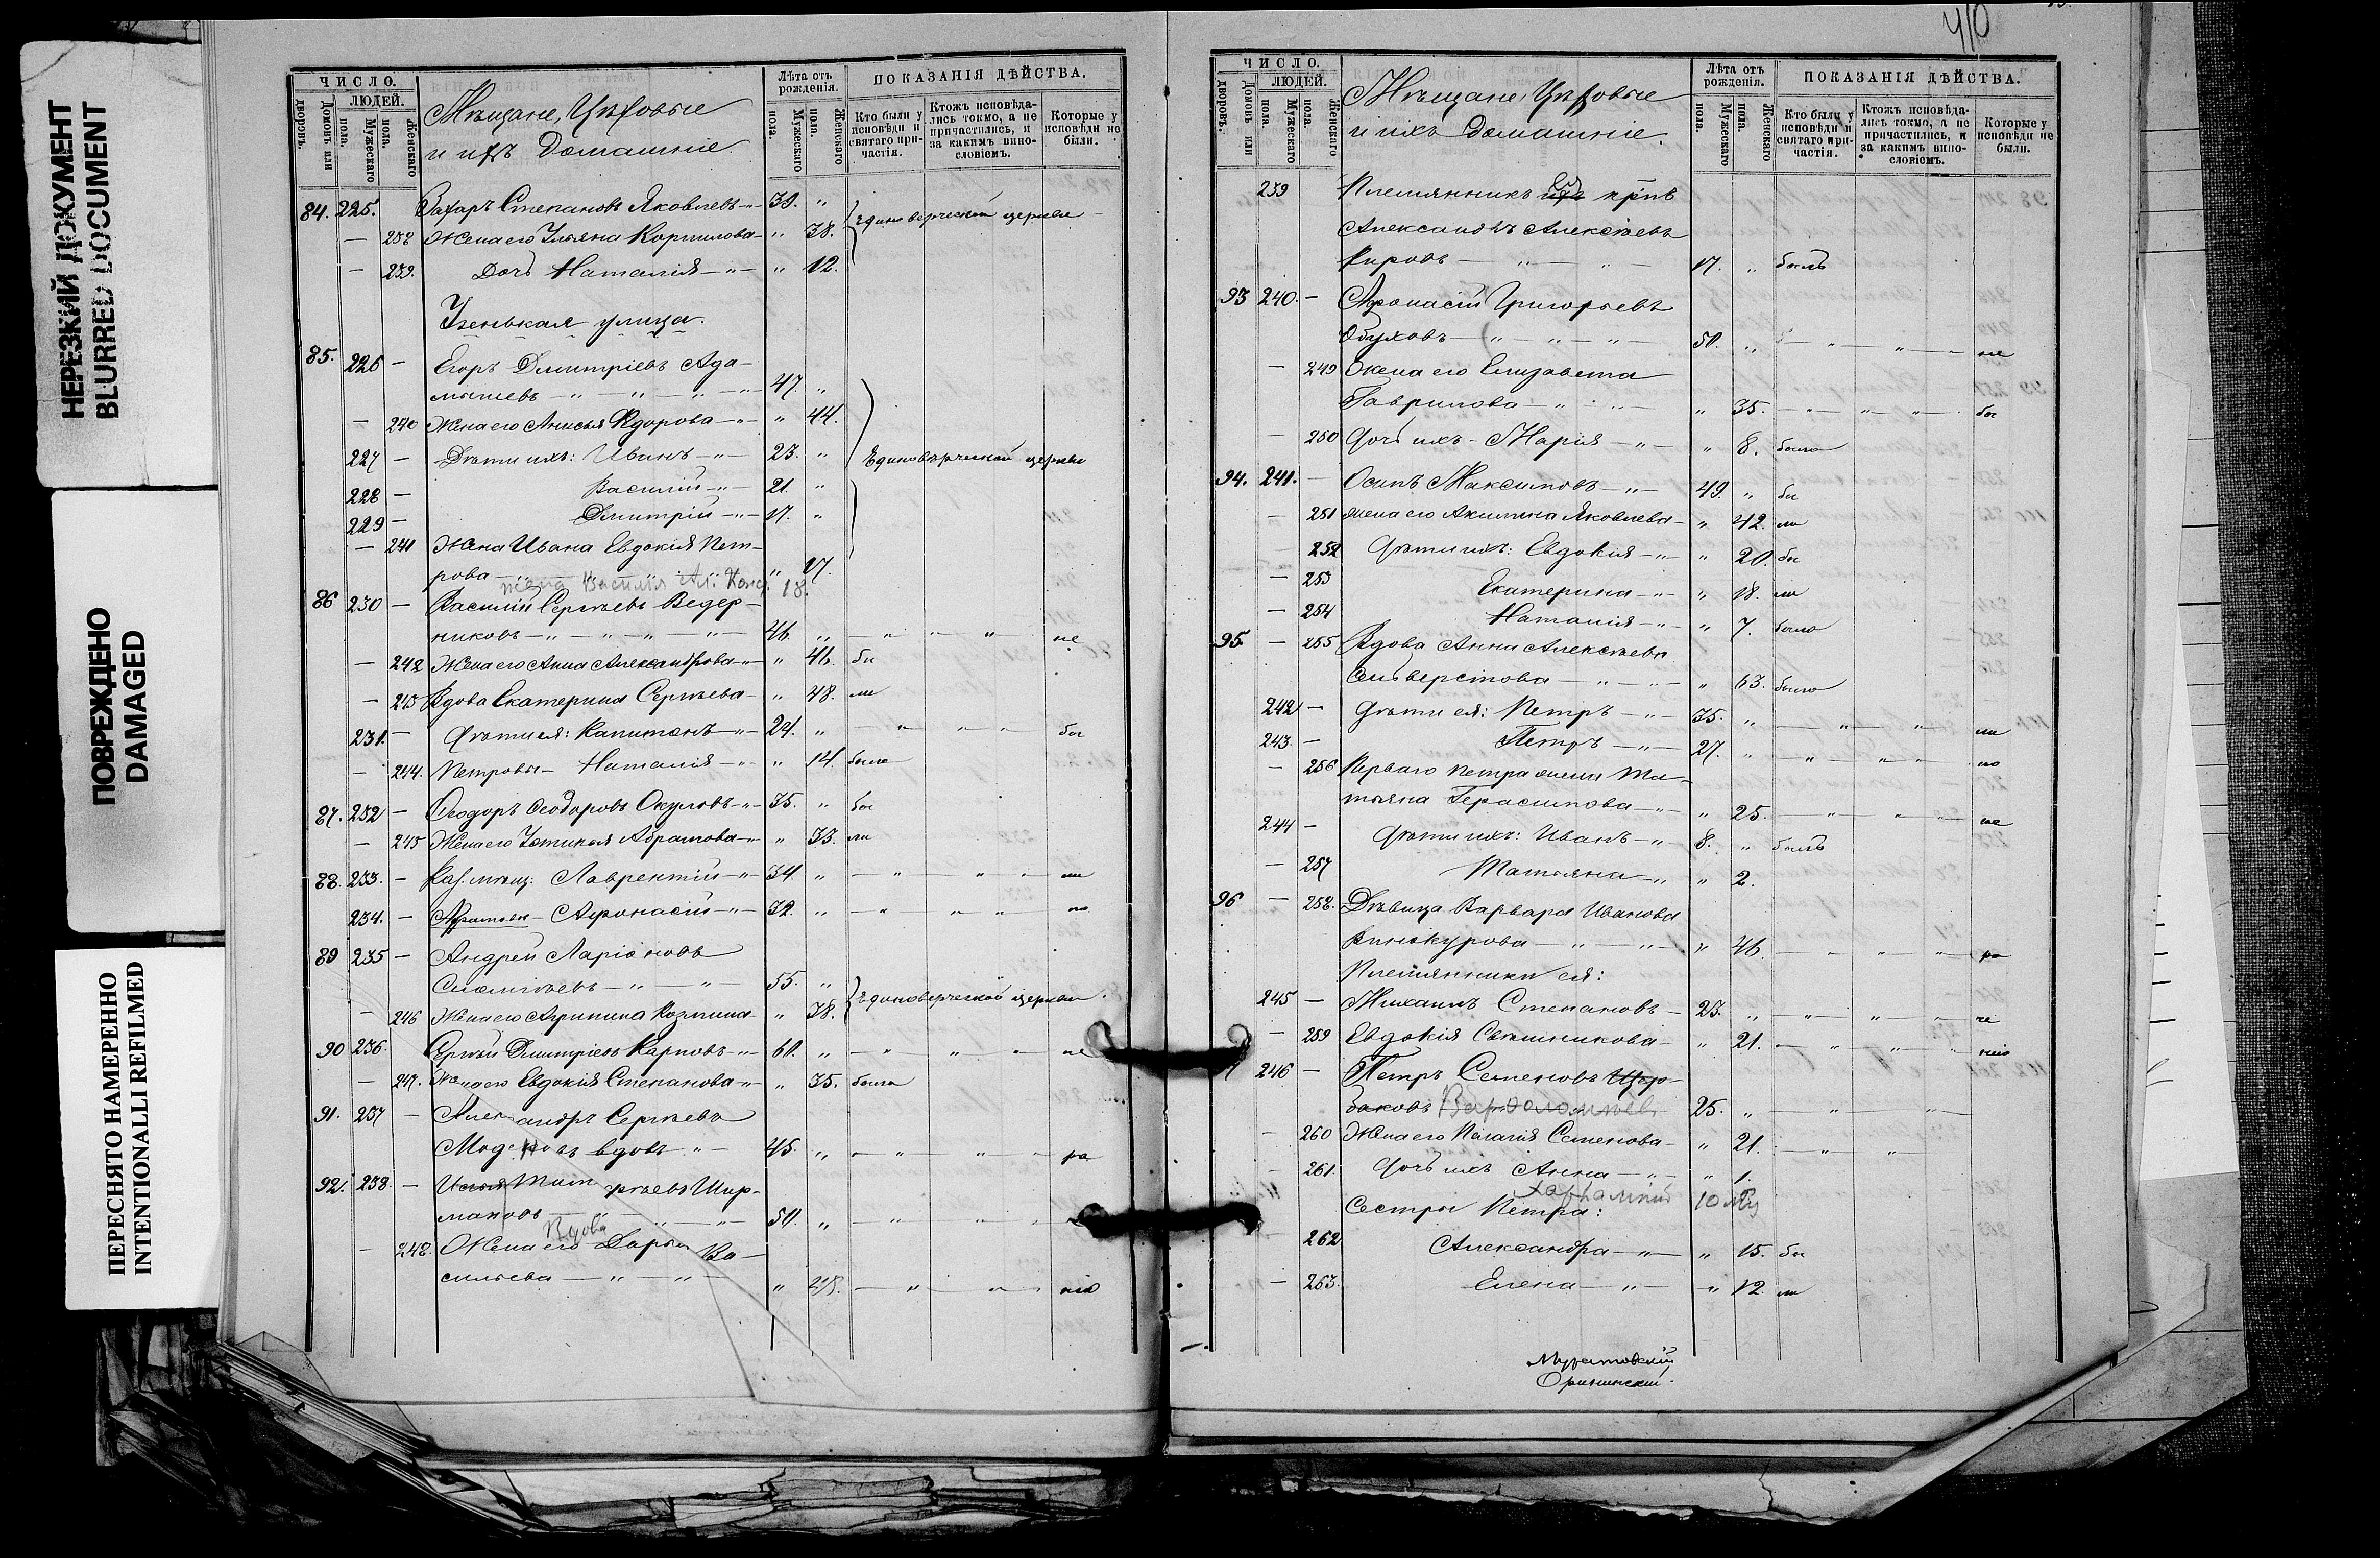 НЕРЕЗКИЙ ДОКУМЕНТ
BLURRED DOCUMENT
ПОВРЕЖДЕНО
DAMAGED
ПЕРЕСНЯТО НАМЕРЕННО
INTENTIONALLI REFILMED
ЧИСЛО.
ЛЮДЕЙ.
Домовъ или дворовъ.
Мужескаго пола.
Женскаго пола.
Мѣщане, Цѣховые
и ихъ домашніе
Лѣта отъ рожденія.
Мужескаго пола.
Женскаго пола.
ПОКАЗАНІЯ ДѢЙСТВА.
Кто были у исповѣди и святаго причастія.
Ктожъ исповѣдались токмо, а не причастились, и за какимъ винословіемъ.
Которые у исповѣди не были.
84. 225. Захаръ Степановъ Яковлевъ 39. Единоверческой церкви
238 Жена его Ульяна Корнилова 38.
239. Дочь Наталія 12.
Узенькая улица.
85. 226 Егоръ Дмитріевъ Ада-
мышевъ 47.
240 Жена его Анисья Ѳедорова 44.
227 Дѣти ихъ: Иванъ 23. Единовѣрческой церкви
228 Василій 21.
229 Дмитрій 17.
241 Жена Ивана Евдокія Пет-
рова 17.
жена Василія 18.
86 230 Василій Сергѣевъ Ведер-
никовъ 46. не
242 Жена его Анна Александрова 46. бы
243 Вдова Екатерина Сергѣева 48. ли
231. Дѣти ея: Капитонъ 24. бы
244. Петровы Наталія 14. была
87. 232 Ѳеодоръ Ѳеодоровъ Окуловъ 35. бы
245 Жена его Устинья Абрамова 33. ли
88. 233. Каз. мѣщ. Лаврентій 34. ли
234. Афанасій 32. по
89 235 Андрей Ларіоновъ
55. Единоверческой церкви
246 Жена его Агрипина Козмина 38.
90 236. Сергѣй Дмитріевъ Карповъ 60. не
247. Жена его Евдокія Степанова 35. была
91. 237 Александръ Сергѣевъ
вдовъ 45. ра
92. 238. Шир-
мановъ 50.
Вдова
248. Жена его Дарья Ва-
сильева 48. нію
410
ЧИСЛО.
ЛЮДЕЙ.
Домовъ или дворовъ.
Мужескаго пола.
Женскаго пола.
Мѣщане, Цѣховые
и ихъ домашніе.
Лѣта отъ рожденія.
Мужескаго пола.
Женскаго пола.
ПОКАЗАНІЯ ДѢЙСТВА.
Кто были у исповѣди и святаго причастія.
Ктожъ исповѣдались токмо, а не причастились, и за какимъ винословіемъ.
Которые у исповѣди не были.
239 Племянникъ
Александръ Алексѣевъ
Кировъ 17. былъ
93 240. Афонасій Григорьевъ
Обуховъ 50. не
249 Жена его Елизавета
Гаврилова 35. бы
250 Дочь ихъ Марія 8. была
94. 241. Осипъ Максимовъ 49. бы
251 Жена его Акилина Яковлева 42. ли
252 Дѣти ихъ: Евдокія 20. бы
253 Екатерина 18. ли
254 Наталія 7. была
95. 255 Вдова Анна Алексѣева
Сельверстова 63. была
242 Дѣти ея: Петръ 35. ли
243. Петръ 27. по
256 Перваго Петра жена Та-
тьяна Герасимова 25. не
244 Дѣти ихъ: Иванъ 8. былъ
257 Татьяна 2.
96 258. Дѣвица Варвара Иванова
Винокурова 46. ра
Племянники ея:
245 Михаилъ Степановъ 23. че
259 Евдокія Свѣшникова 21. нію
246 Петръ Семеновъ
Варѳоломѣевъ 25.
260 Жена его Пелагія Семенова 21.
261. Дочь ихъ Анна 1.
Сестры Петра:
262 Александра 15. бы
263. Елена 12. ли